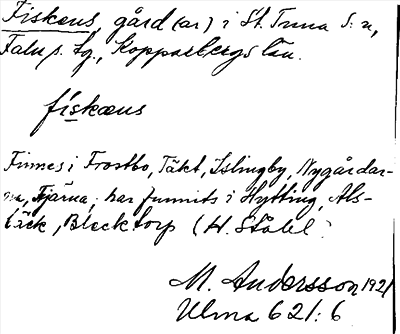 Fiskens, gård(ar) i St. Tuna S:n,
Falu s. Lg., Kopparbergs län.
fiskæus
Finnes i Frostbo, Täkt, Islingby, Nygårdar-
na, Tjärna; har funnits i Hytting, Als-
bäck, Blecktorp (H. Ståhl).
M. Andersson 1921
Ulma 621:6